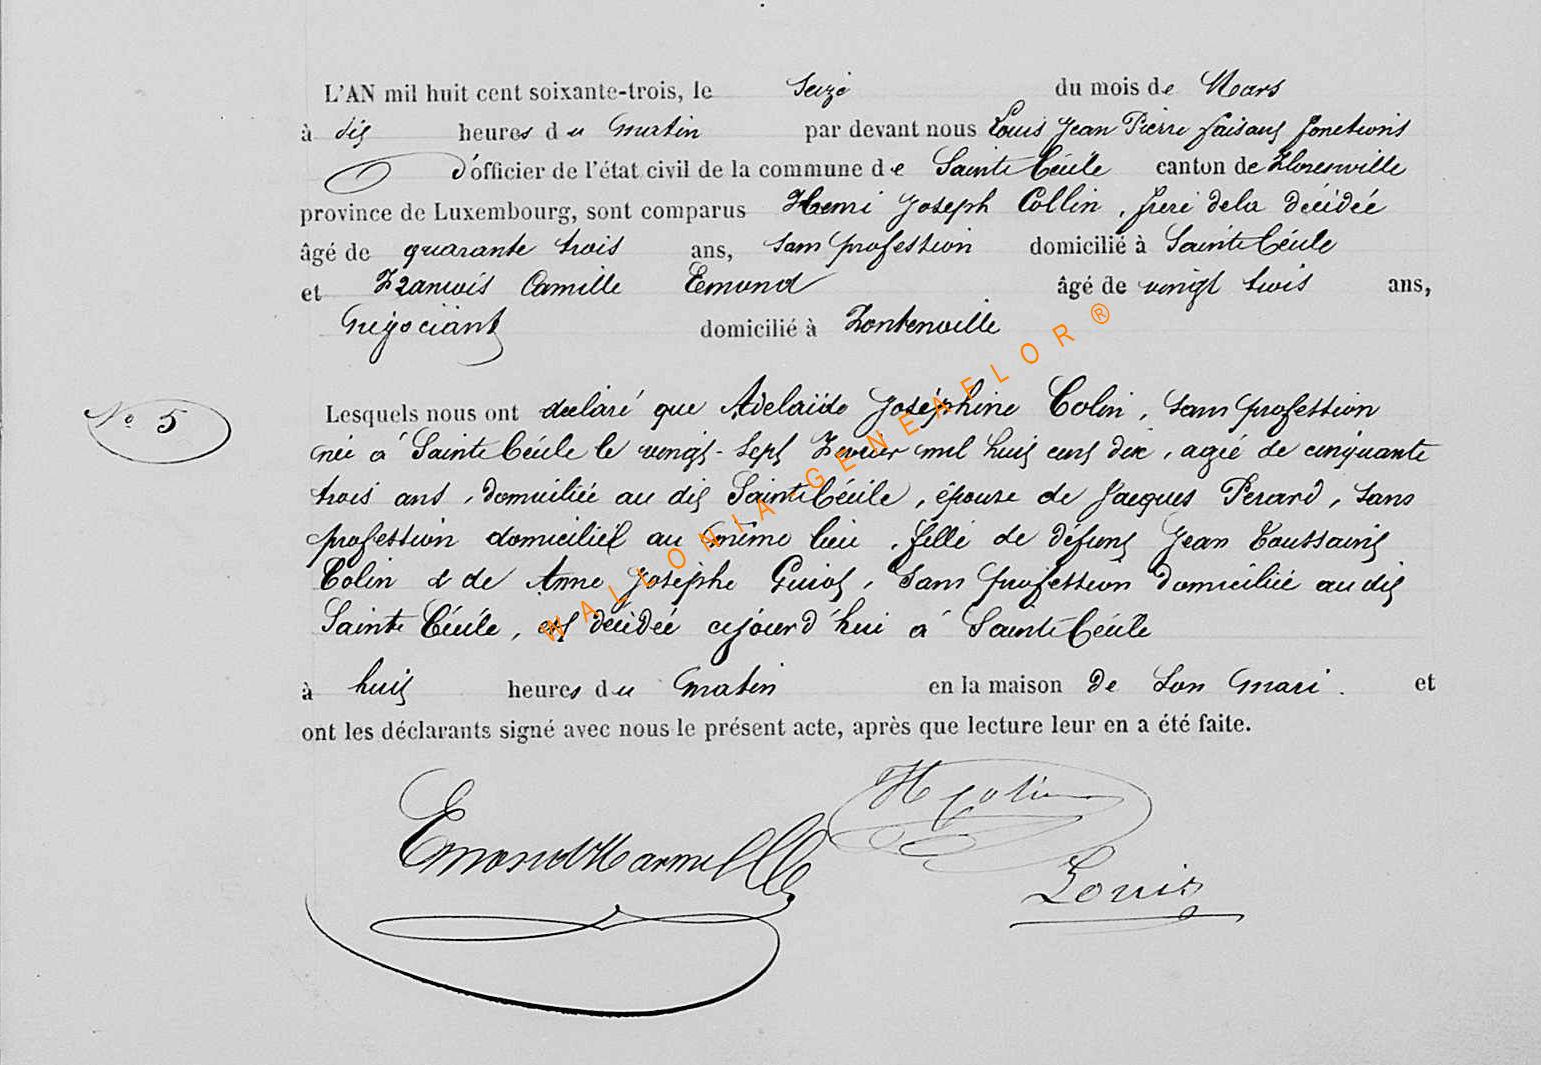 L'AN mil huit cent soixante-trois, le Seize du mois de Mars
à dix heures du Matin par devant nous Louis Jean Pierre faisant fonctions
d'officier de l'état civil de la commune de Sainte Cécile canton de Florenville
province de Luxembourg, sont comparus Henri Joseph Collin, frère dela décédée
âgé de quarante trois ans, Sans profession domicilié à Sainte Cécile
et François Camille Emond âgé de vingt trois ans,
Négociant domicilié à Fontenoille
N° 5
Lesquels nous ont déclaré que Adelaïde Joséphine Colin, Sans profession
née à Sainte Cécile le vingt-Sept Fevrier mil huit cent dix, agée de cinquante
trois ans, domiciliée au dit Sainte Cécile, épouse de Jacques Perard, Sans
profession domicilié au même lieu, fille de défunt Jean Toussaint
Colin & de Anne Josephe Guiot, Sans profession domiciliée au dit
Sainte Cécile, est décédée cejourd'hui à Sainte Cécile
à huit heures du Matin en la maison de Son Mari. et
ont les déclarants signé avec nous le présent acte, après que lecture leur en a été faite.
H J Colin
Emond
Louis
WALLONIA-GENEAFLOR®